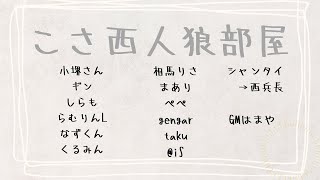 こさ西人狼部屋
小堺さん
ギン
しらも
らむりんL
なずくん
くるみん
相馬りさ
まあり
ぺぺ
gengar
taku
@iS
シャンタイ
→西兵長
GMはまや